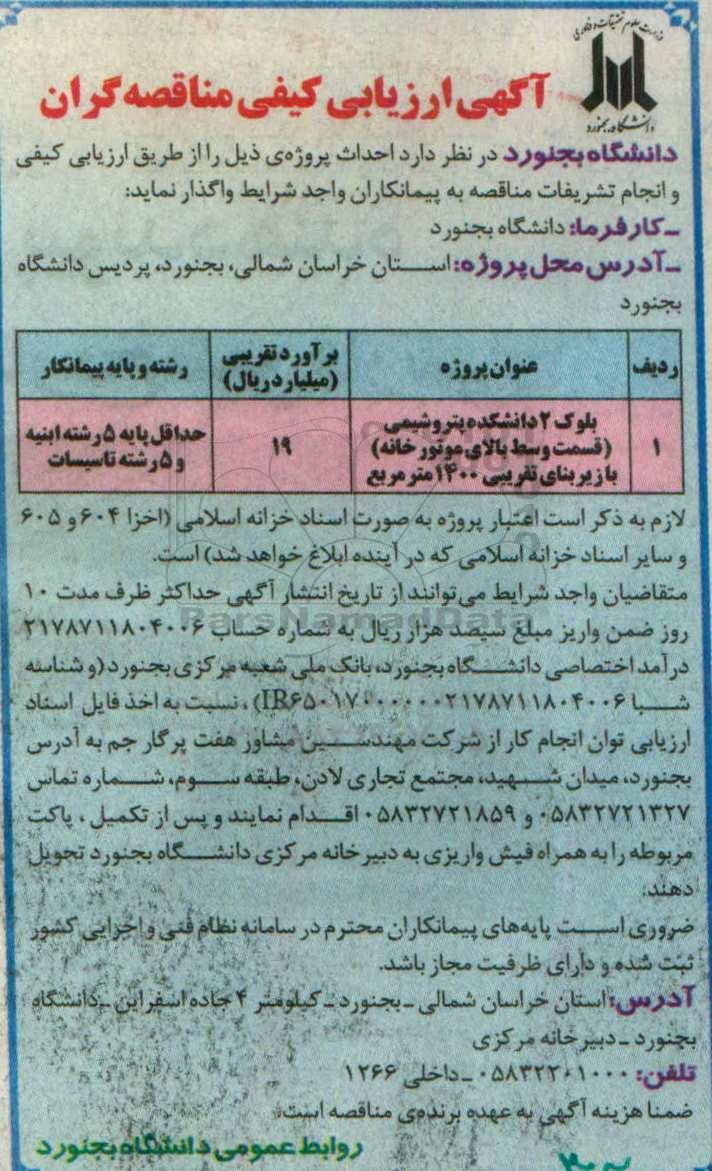 وزارت علوم تحقیقات و فناوری
دانشگاه بجنورد
آگهی ارزیابی کیفی مناقصه گران
دانشگاه بجنورد در نظر دارد احداث پروژه‌ی ذیل را از طریق ارزیابی کیفی
و انجام تشریفات مناقصه به پیمانکاران واجد شرایط واگذار نماید:
ـ کارفرما: دانشگاه بجنورد
ـ آدرس محل پروژه: استان خراسان شمالی، بجنورد، پردیس دانشگاه
بجنورد
ردیف عنوان پروژه برآورد تقریبی (میلیارد ریال) رشته و پایه پیمانکار
۱ بلوک ۲ دانشکده پتروشیمی (قسمت وسط بالای موتورخانه) با زیربنای تقریبی ۱۴۰۰ متر مربع ۱۹ حداقل پایه ۵ رشته ابنیه و ۵ رشته تاسیسات
لازم به ذکر است اعتبار پروژه به صورت اسناد خزانه اسلامی (اخزا ۶۰۴ و ۶۰۵
و سایر اسناد خزانه اسلامی که در آینده ابلاغ خواهد شد) است.
متقاضیان واجد شرایط می‌توانند از تاریخ انتشار آگهی حداکثر ظرف مدت ۱۰
روز ضمن واریز مبلغ سیصد هزار ریال به شماره حساب ۲۱۷۸۷۱۱۸۰۴۰۰۶
درآمد اختصاصی دانشگاه بجنورد، بانک ملی شعبه مرکزی بجنورد (و شناسه
شبا IR۶۵۰۱۷۰۰۰۰۰۰۰۲۱۷۸۷۱۱۸۰۴۰۰۶)، نسبت به اخذ فایل اسناد
ارزیابی توان انجام کار از شرکت مهندسین مشاور هفت پرگار جم به آدرس
بجنورد، میدان شهید، مجتمع تجاری لادن، طبقه سوم، شماره تماس
۰۵۸۳۲۷۲۱۳۲۷ و ۰۵۸۳۲۷۲۱۸۵۹ اقدام نمایند و پس از تکمیل، پاکت
مربوطه را به همراه فیش واریزی به دبیرخانه مرکزی دانشگاه بجنورد تحویل
دهند.
ضروری است پایه‌های پیمانکاران محترم در سامانه نظام فنی و اجرایی کشور
ثبت شده و دارای ظرفیت مجاز باشد.
آدرس: استان خراسان شمالی ـ بجنورد ـ کیلومتر ۴ جاده اسفراین ـ دانشگاه
بجنورد ـ دبیرخانه مرکزی
تلفن: ۰۵۸۳۲۲۰۱۰۰۰ ـ داخلی ۱۲۶۶
ضمنا هزینه آگهی به عهده برنده‌ی مناقصه است.
روابط عمومی دانشگاه بجنورد
ParsNamadData